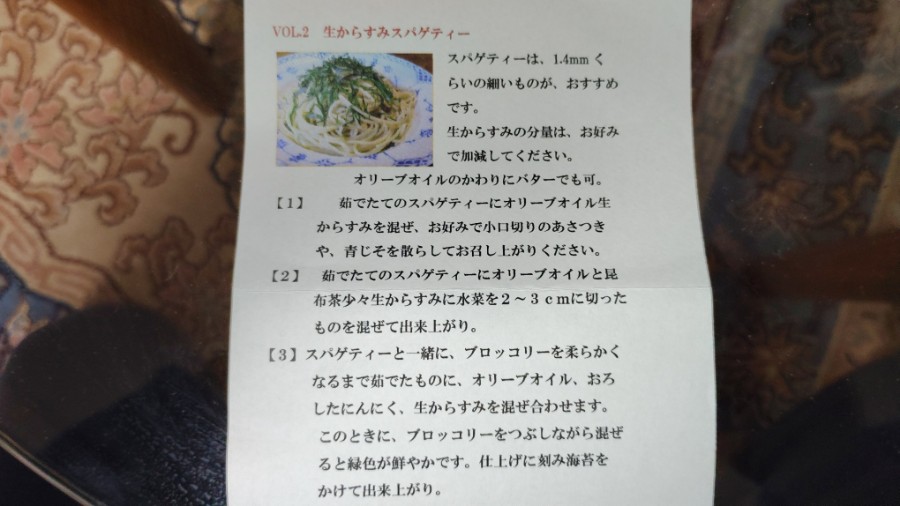 VOL.2 生からすみスパゲティー
スパゲティーは、1.4mm く
らいの細いものが、おすすめ
です。
生からすみの分量は、お好み
で加減してください。
オリーブオイルのかわりにバターでも可。
【1】 茹でたてのスパゲティーにオリーブオイル生
からすみを混ぜ、お好みで小口切りのあさつき
や、青じそを散らしてお召し上がりください。
【2】 茹でたてのスパゲティーにオリーブオイルと昆
布茶少々生からすみに水菜を2~3cmに切った
ものを混ぜて出来上がり。
【3】スパゲティーと一緒に、ブロッコリーを柔らかく
なるまで茹でたものに、オリーブオイル、おろ
したにんにく、生からすみを混ぜ合わせます。
このときに、ブロッコリーをつぶしながら混ぜ
ると緑色が鮮やかです。仕上げに刻み海苔を
かけて出来上がり。